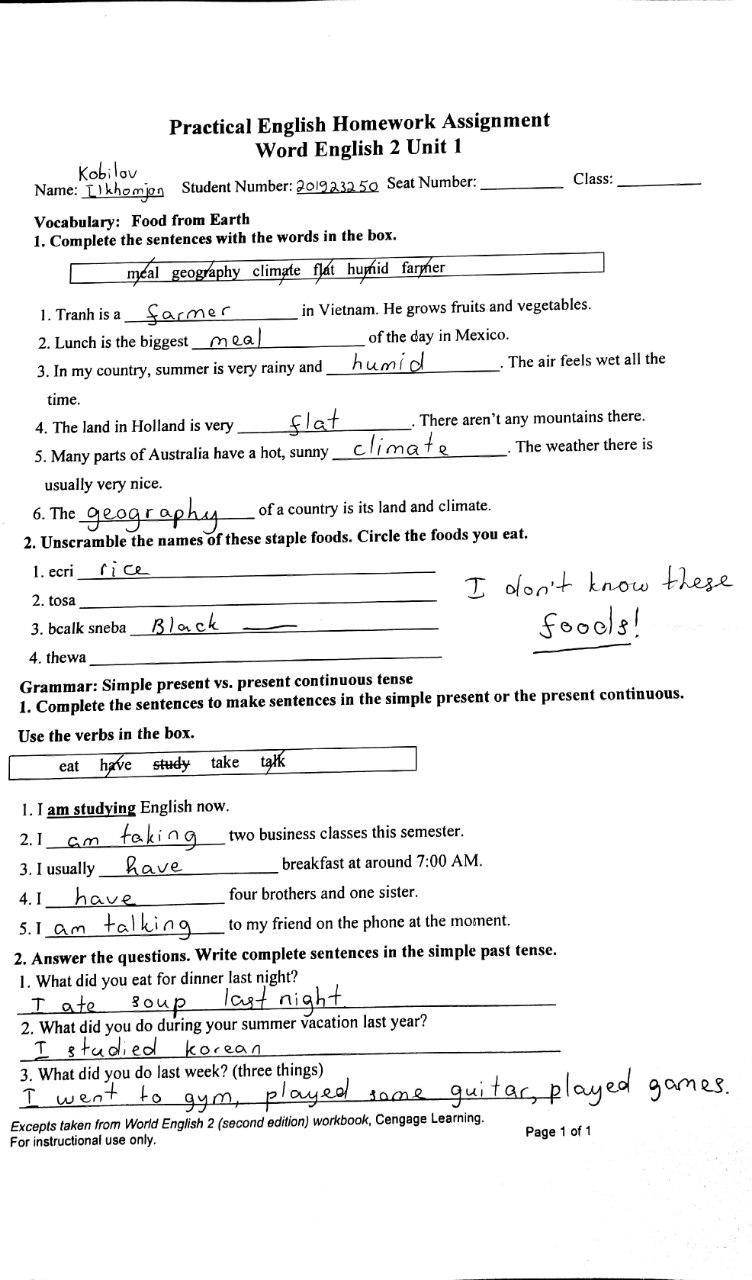 Practical English Homework Assignment
Word English 2 Unit 1
Kobilov
Name: Ilkhomjon Student Number: 201923250 Seat Number: ________ Class: ________
Vocabulary: Food from Earth
1. Complete the sentences with the words in the box.
meal geography climate flat humid farmer
1. Tranh is a farmer in Vietnam. He grows fruits and vegetables.
2. Lunch is the biggest meal of the day in Mexico.
3. In my country, summer is very rainy and humid. The air feels wet all the
time.
4. The land in Holland is very flat. There aren't any mountains there.
5. Many parts of Australia have a hot, sunny climate. The weather there is
usually very nice.
6. The geography of a country is its land and climate.
2. Unscramble the names of these staple foods. Circle the foods you eat.
1. ecri rice
2. tosa
3. bcalk sneba Black —
4. thewa
I don't know these
foods!
Grammar: Simple present vs. present continuous tense
1. Complete the sentences to make sentences in the simple present or the present continuous.
Use the verbs in the box.
eat have study take talk
1. I am studying English now.
2. I am taking two business classes this semester.
3. I usually have breakfast at around 7:00 AM.
4. I have four brothers and one sister.
5. I am talking to my friend on the phone at the moment.
2. Answer the questions. Write complete sentences in the simple past tense.
1. What did you eat for dinner last night?
I ate soup last night
2. What did you do during your summer vacation last year?
I studied korean
3. What did you do last week? (three things)
I went to gym, played some guitar, played games.
Excepts taken from World English 2 (second edition) workbook, Cengage Learning.
For instructional use only.
Page 1 of 1